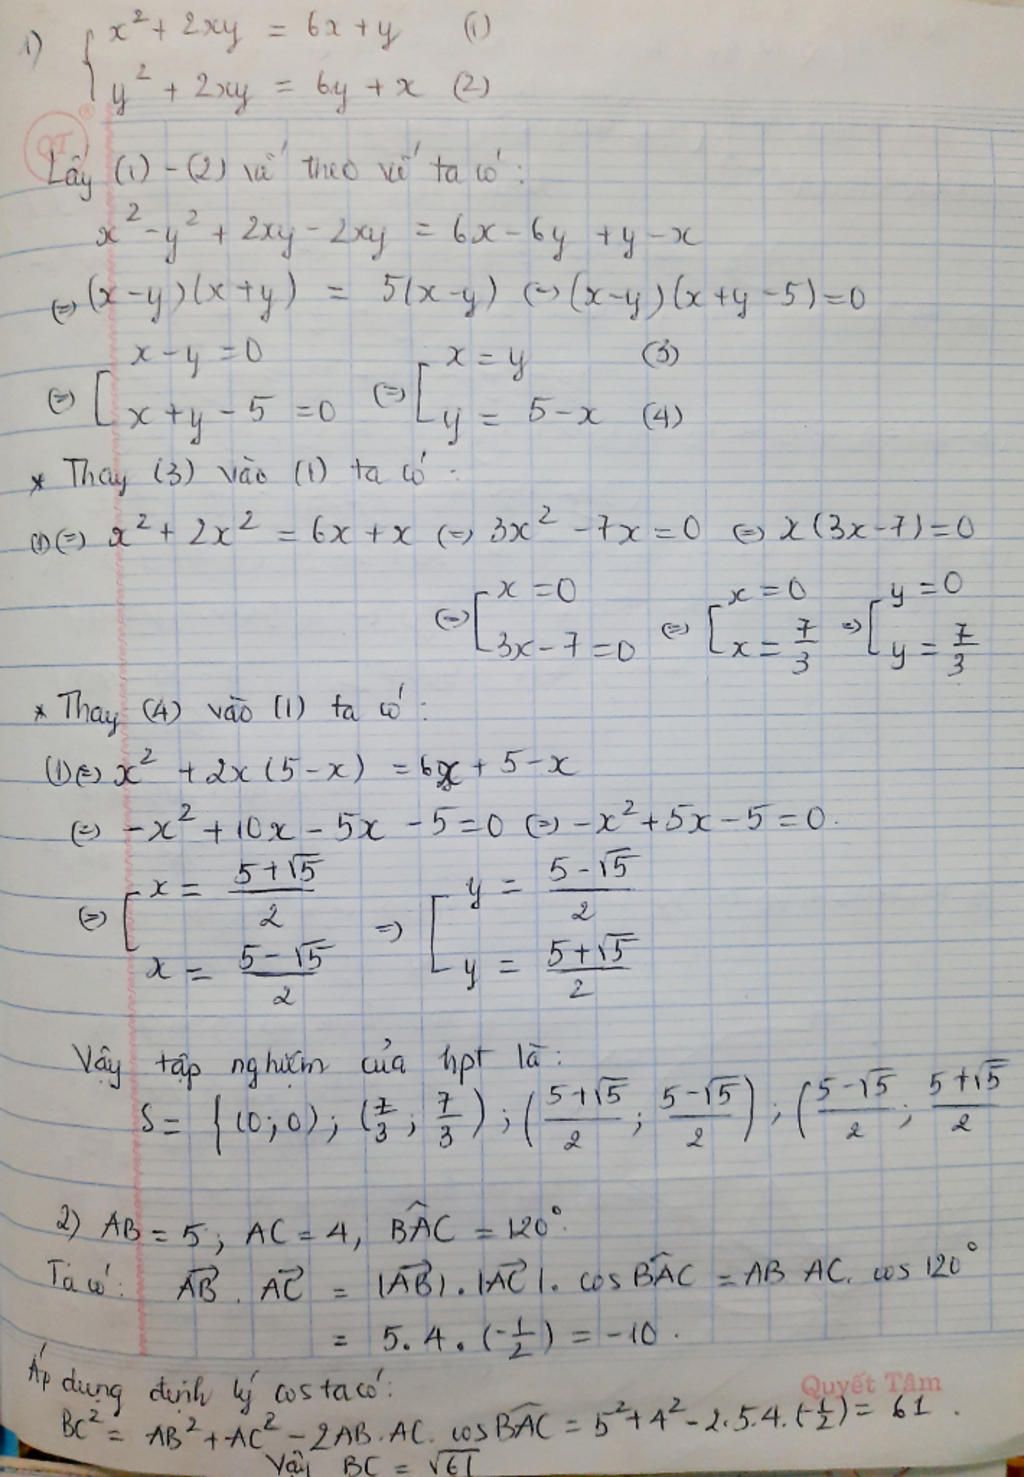 1) { x² + 2xy = 6x + y (1)
y² + 2xy = 6y + x (2)
QT ®
Lấy (1) - (2) vế theo vế ta có:
x² - y² + 2xy - 2xy = 6x - 6y + y - x
(=) (x - y)(x + y) = 5(x - y) (=) (x - y)(x + y - 5) = 0
(=) [ x - y = 0 (=) [ x = y (3)
x + y - 5 = 0 y = 5 - x (4)
* Thay (3) vào (1) ta có:
(1) (=) x² + 2x² = 6x + x (=) 3x² - 7x = 0 (=) x(3x - 7) = 0
(=) [ x = 0 (=) [ x = 0 => [ y = 0
3x - 7 = 0 x = 7/3 y = 7/3
* Thay (4) vào (1) ta có:
(1) (=) x² + 2x(5 - x) = 6x + 5 - x
(=) -x² + 10x - 5x - 5 = 0 (=) -x² + 5x - 5 = 0.
(=) [ x = (5 + √5)/2 => [ y = (5 - √5)/2
x = (5 - √5)/2 y = (5 + √5)/2
Vậy tập nghiệm của hpt là:
S = { (0; 0); (7/3; 7/3); ((5 + √5)/2; (5 - √5)/2); ((5 - √5)/2; (5 + √5)/2
2) AB = 5; AC = 4, BÂC = 120°.
Ta có: AB⃗ . AC⃗ = |AB⃗| . |AC⃗| . cos BÂC = AB AC. cos 120°
= 5. 4. (-1/2) = -10.
Áp dụng định lý cos ta có:
Quyết Tâm
BC² = AB² + AC² - 2AB. AC. cos BÂC = 5² + 4² - 2.5.4.(-1/2) = 61.
Vậy BC = √61